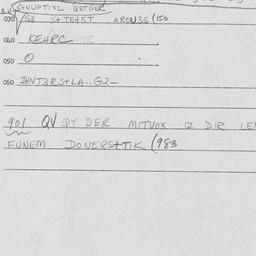 S+NUPTIXL QETGER
030 /S3 S+TEHKT ARON3S (150
040 KEHRC
050 O
060 IHNT3RS+LA..G2-
901 QV QY DER MITVOX IZ DIR LE
FUNEM DONERS+TIK (983